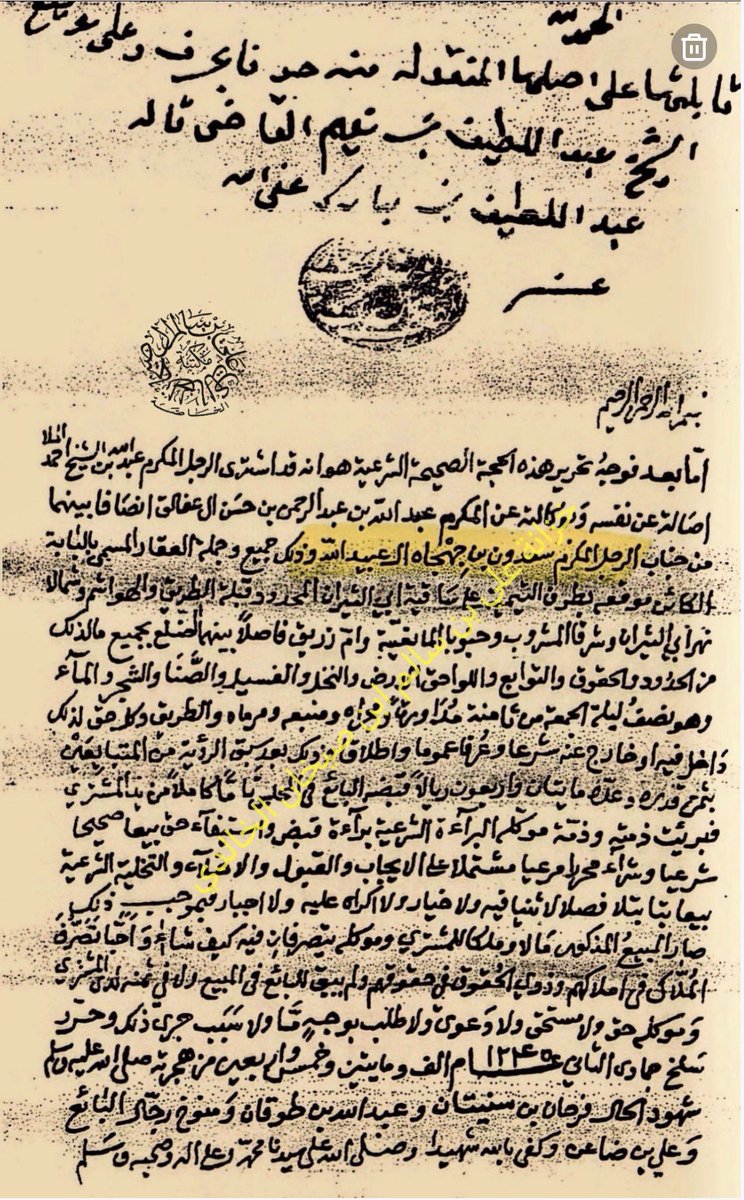 الحمد لله
قابلتها على اصلها المنقولة منه حرفا بحرف وعلى
الشيخ عبد اللطيف بن نعيم القاضي قاله
عبد اللطيف بن مبارك عفى الله
عنه
بسم الله الرحمن الرحيم
اما بعد فوجه تحرير هذه الحجة الصحيحة الشرعية هو انه قد اشترى الرجل المكرم عبد الله بن الشيخ احمد الملا
اصالة عن نفسه ووكالة عن المكرم عبد الله بن عبد الرحمن بن حسن ال عفالق انصافا بينهما
من جناب الرجل المكرم سعدون بن جخاه ال عبيد الله وذلك جميع وجملة العقار المسمى بالنابة
الكائن موقعه بطرف التيمي على ساقية ابي الثيران المحدود قبلة الطريق والهواشم وشمالا
نهر ابي الثيران وشرقا المشروب وجنوبا وام زريق فاصلا بينهما الضلع بجميع ما لذلك
من الحدود والحقوق والتوابع واللواحق ارض والنخل والفسيل والصنا والشجر والمآء
وهو نصف ليلة الجمعة من ثامنة ومنبعه ومرماه والطريق وكل حق لذلك
داخل فيه او خارج عنه شرعا وعرفا عموما واطلاقا وذلك بعد سبق الرؤية من المتبايعين
بثمن قدره وعده مايتان واربعون ريالا قبضه البائع في المجلس تاما كاملا من يد المشتري
فبرئت ذمته وذمة موكله البراءة الشرعية براءة قبض واستيفآء حق بيعا صحيحا
شرعيا وشراء محررا مرعيا مشتملا على الايجاب والقبول والتخلية الشرعية
بيعا بتا بتلا فصلا لا ثنيا فيه ولا خيار ولا اكراه عليه ولا اجبار فبموجب ذلك
صار المبيع المذكور مالا وملكا للمشتري وموكله يتصرفان فيه كيف شاء واحبا تصرف
الملاك في املاكهم وذوي الحقوق في حقوقهم ولم يبق للبائع في المبيع ولا في ثمنه لدى المشتري
وموكله حق ولا مستحق ولا دعوى ولا طلب بوجه ما ولا سبب جرى ذلك وحرر
سلخ جمادى الثاني عام ١٢٤٥ الف ومايتين وخمس واربعين من هجرته صلى الله عليه وسلم
شهود الحال فرحان بن سنيتان وعبد الله بن طوقان ومنوخ رجال البائع
وعلي بن ضاعن وكفى بالله شهيدا وصلى الله على سيدنا محمد وعلى اله وصحبه وسلم